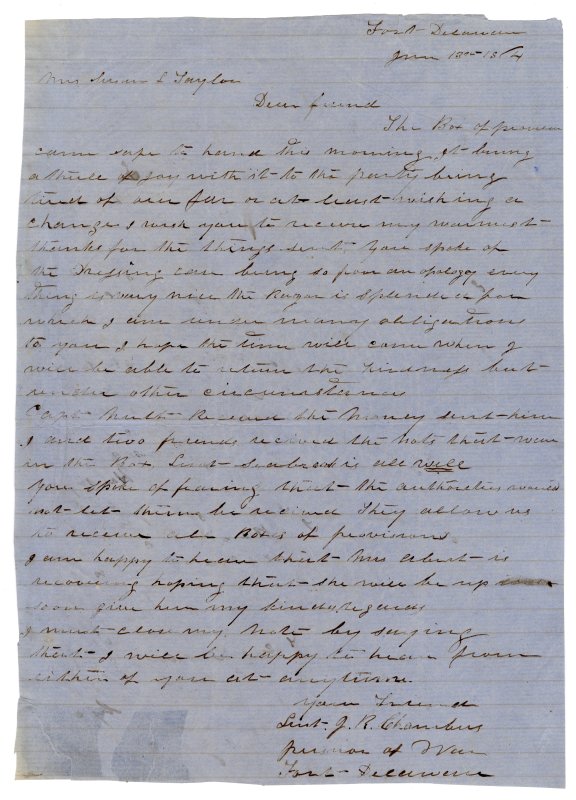 Fort Delaware
June 18th 1864
Mrs Susan L Taylor
Dear friend
The Box of provision
came safe to hand this morning, It being
a thrill of joy with it to the party being
tired of our far or at least wishing a
change I wish you to receive my warmest
thanks for the things sent. You spoke of
the Dressing case being so poor an apology every
thing is very nice the Razor is Splended for
which I am under many obligations
to you I hope the time will come when I
will be able to return the kindness but
under other circumstances
Capt received the Money sent him
I and two friends received the hats that were
in the Box. Lieut Seabrook is all well
You spoke of fearing that the authorities would
not let them be recived They allow us
to receive all Boxes of provisions
I am happy to hear that Mrs Albert is
recovering hoping that she will be up
soon give her my kind regards
I must close my note by saying
that I will be happy to hear from
either of you at anytime
Your Friend
Lieut J. R. Chambers
prisoner of War
Fort Delaware